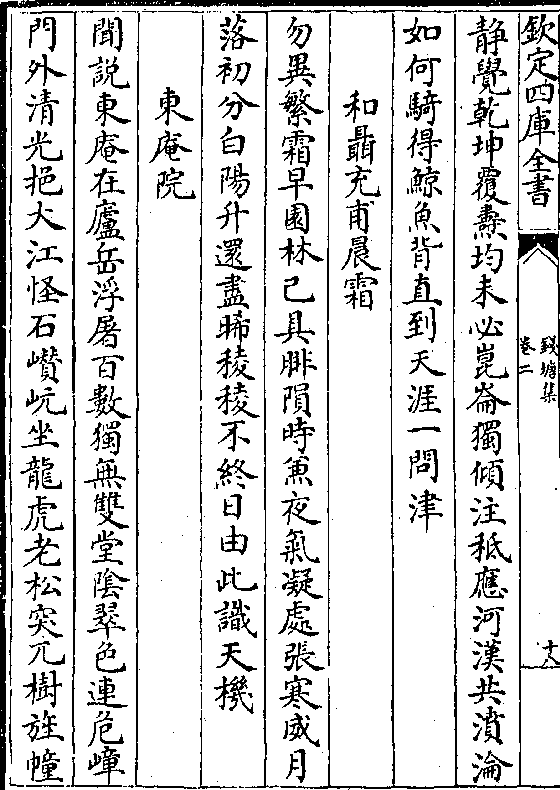 欽定四庫全書
錢塘集
卷二
十八
静覺乾坤覆燾均未必崑崙獨傾注秪應河漢共濆淪
如何騎得鯨魚背直到天涯一問津
和聶充甫晨霜
勿異繁霜早園林已具腓隕時兼夜氣凝處張寒威月
落初分白陽升還盡晞稜稜不終日由此識天機
東庵院
聞說東庵在廬岳浮屠百數獨無雙堂陰翠色連危嶂
門外清光挹大江怪石巑岏坐龍虎老松突兀樹旌幢